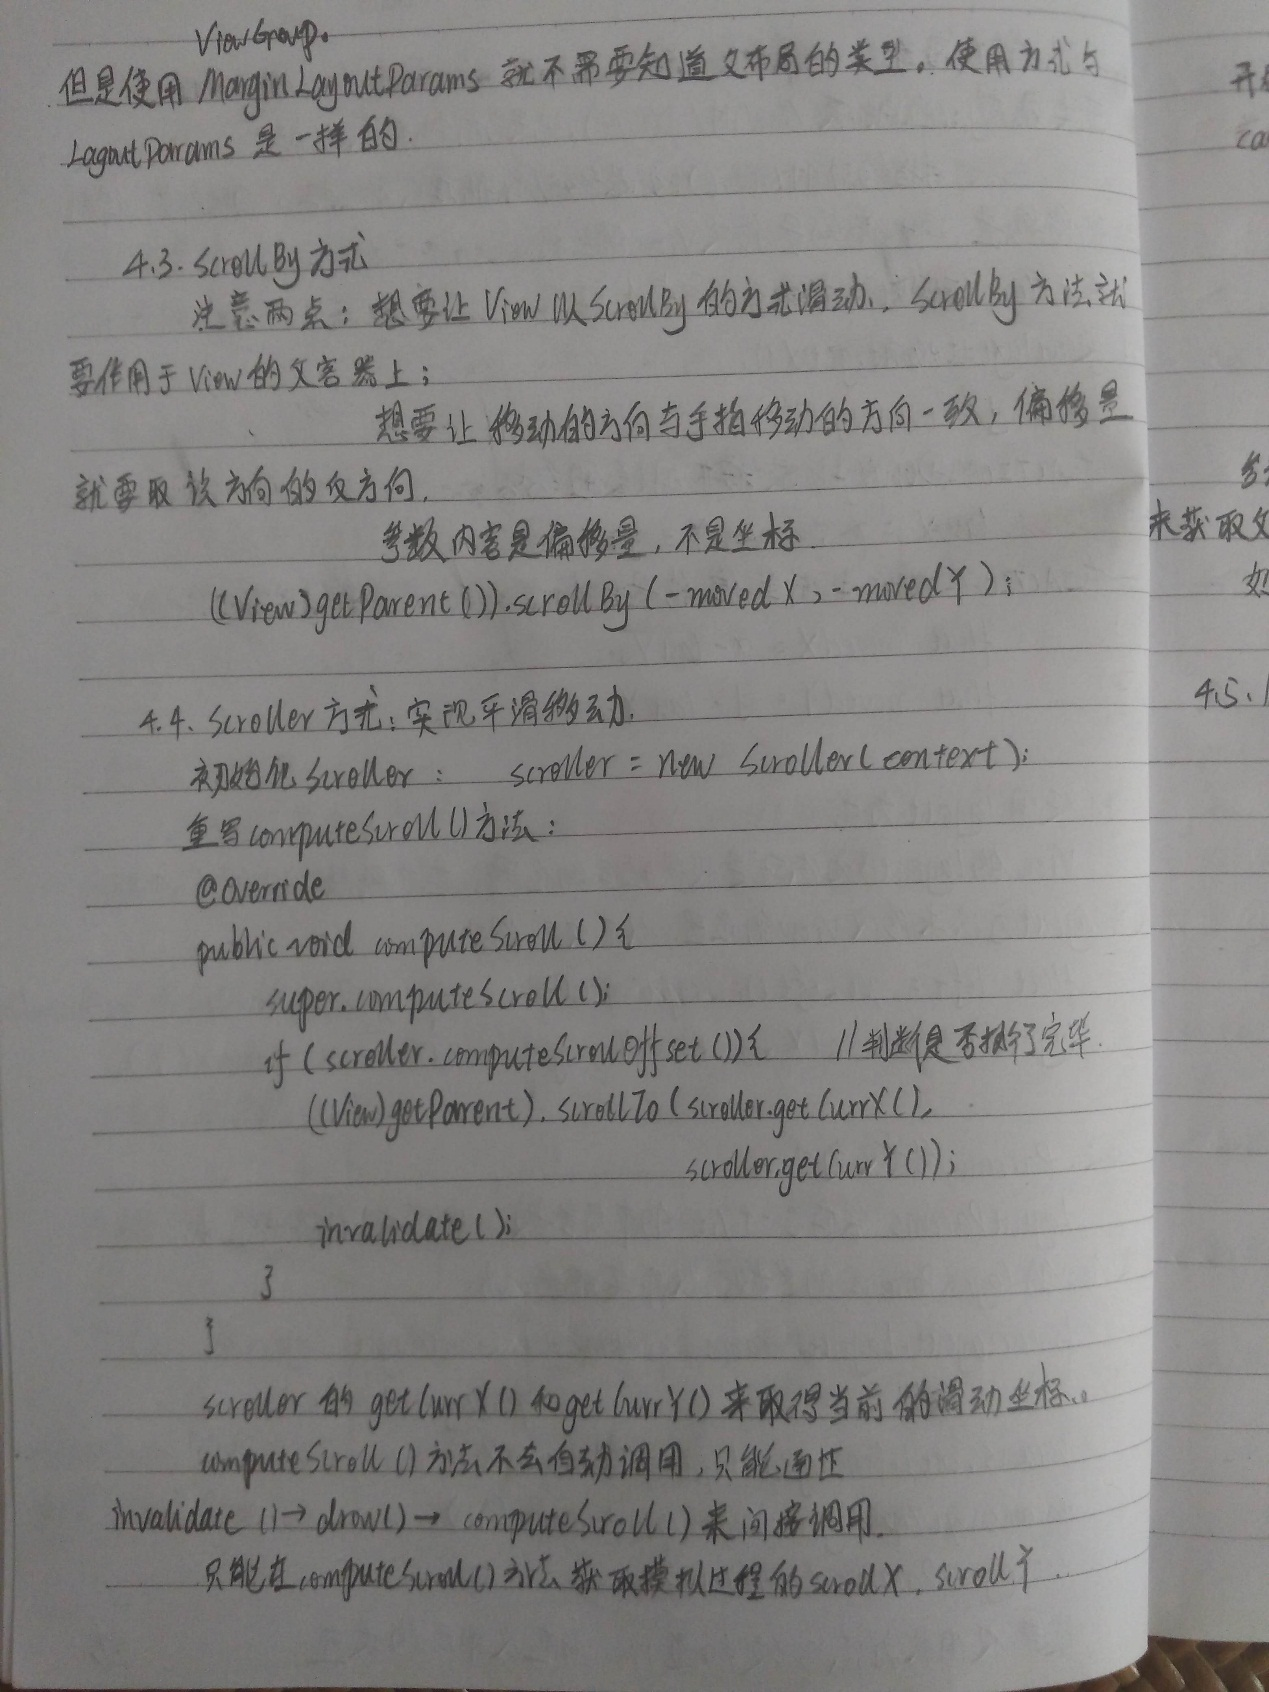 ViewGroup。
但是使用MarginLayoutParams 就不需要知道父布局的类型。使用方式与
LayoutParams 是一样的.
4.3. ScrollBy方式
注意两点：想要让View以ScrollBy的方式滑动，ScrollBy方法就
要作用于View的父容器上；
想要让移动的方向与手指移动的方向一致，偏移量
就要取该方向的反方向.
参数内容是偏移量，不是坐标.
((View)getParent()).scrollBy(-movedX,-movedY);
4.4. Scroller方式：实现平滑移动.
初始化Scroller： scroller = new Scroller(context);
重写computeScroll()方法：
@Override
public void computeScroll(){
super.computeScroll();
if (scroller.computeScrollOffset()){ //判断是否执行完毕.
((View)getParent).scrollTo(scroller.getCurrX(),
scroller.getCurrY());
invalidate();
}
}
scroller的getCurrX()和getCurrY()来取得当前的滑动坐标..
computeScroll()方法不会自动调用，只能通过
invalidate()→draw()→computeScroll()来间接调用.
只能在computeScroll()方法获取模拟过程的scrollX，scrollY.
开
ca
来获取父
如
4.5.